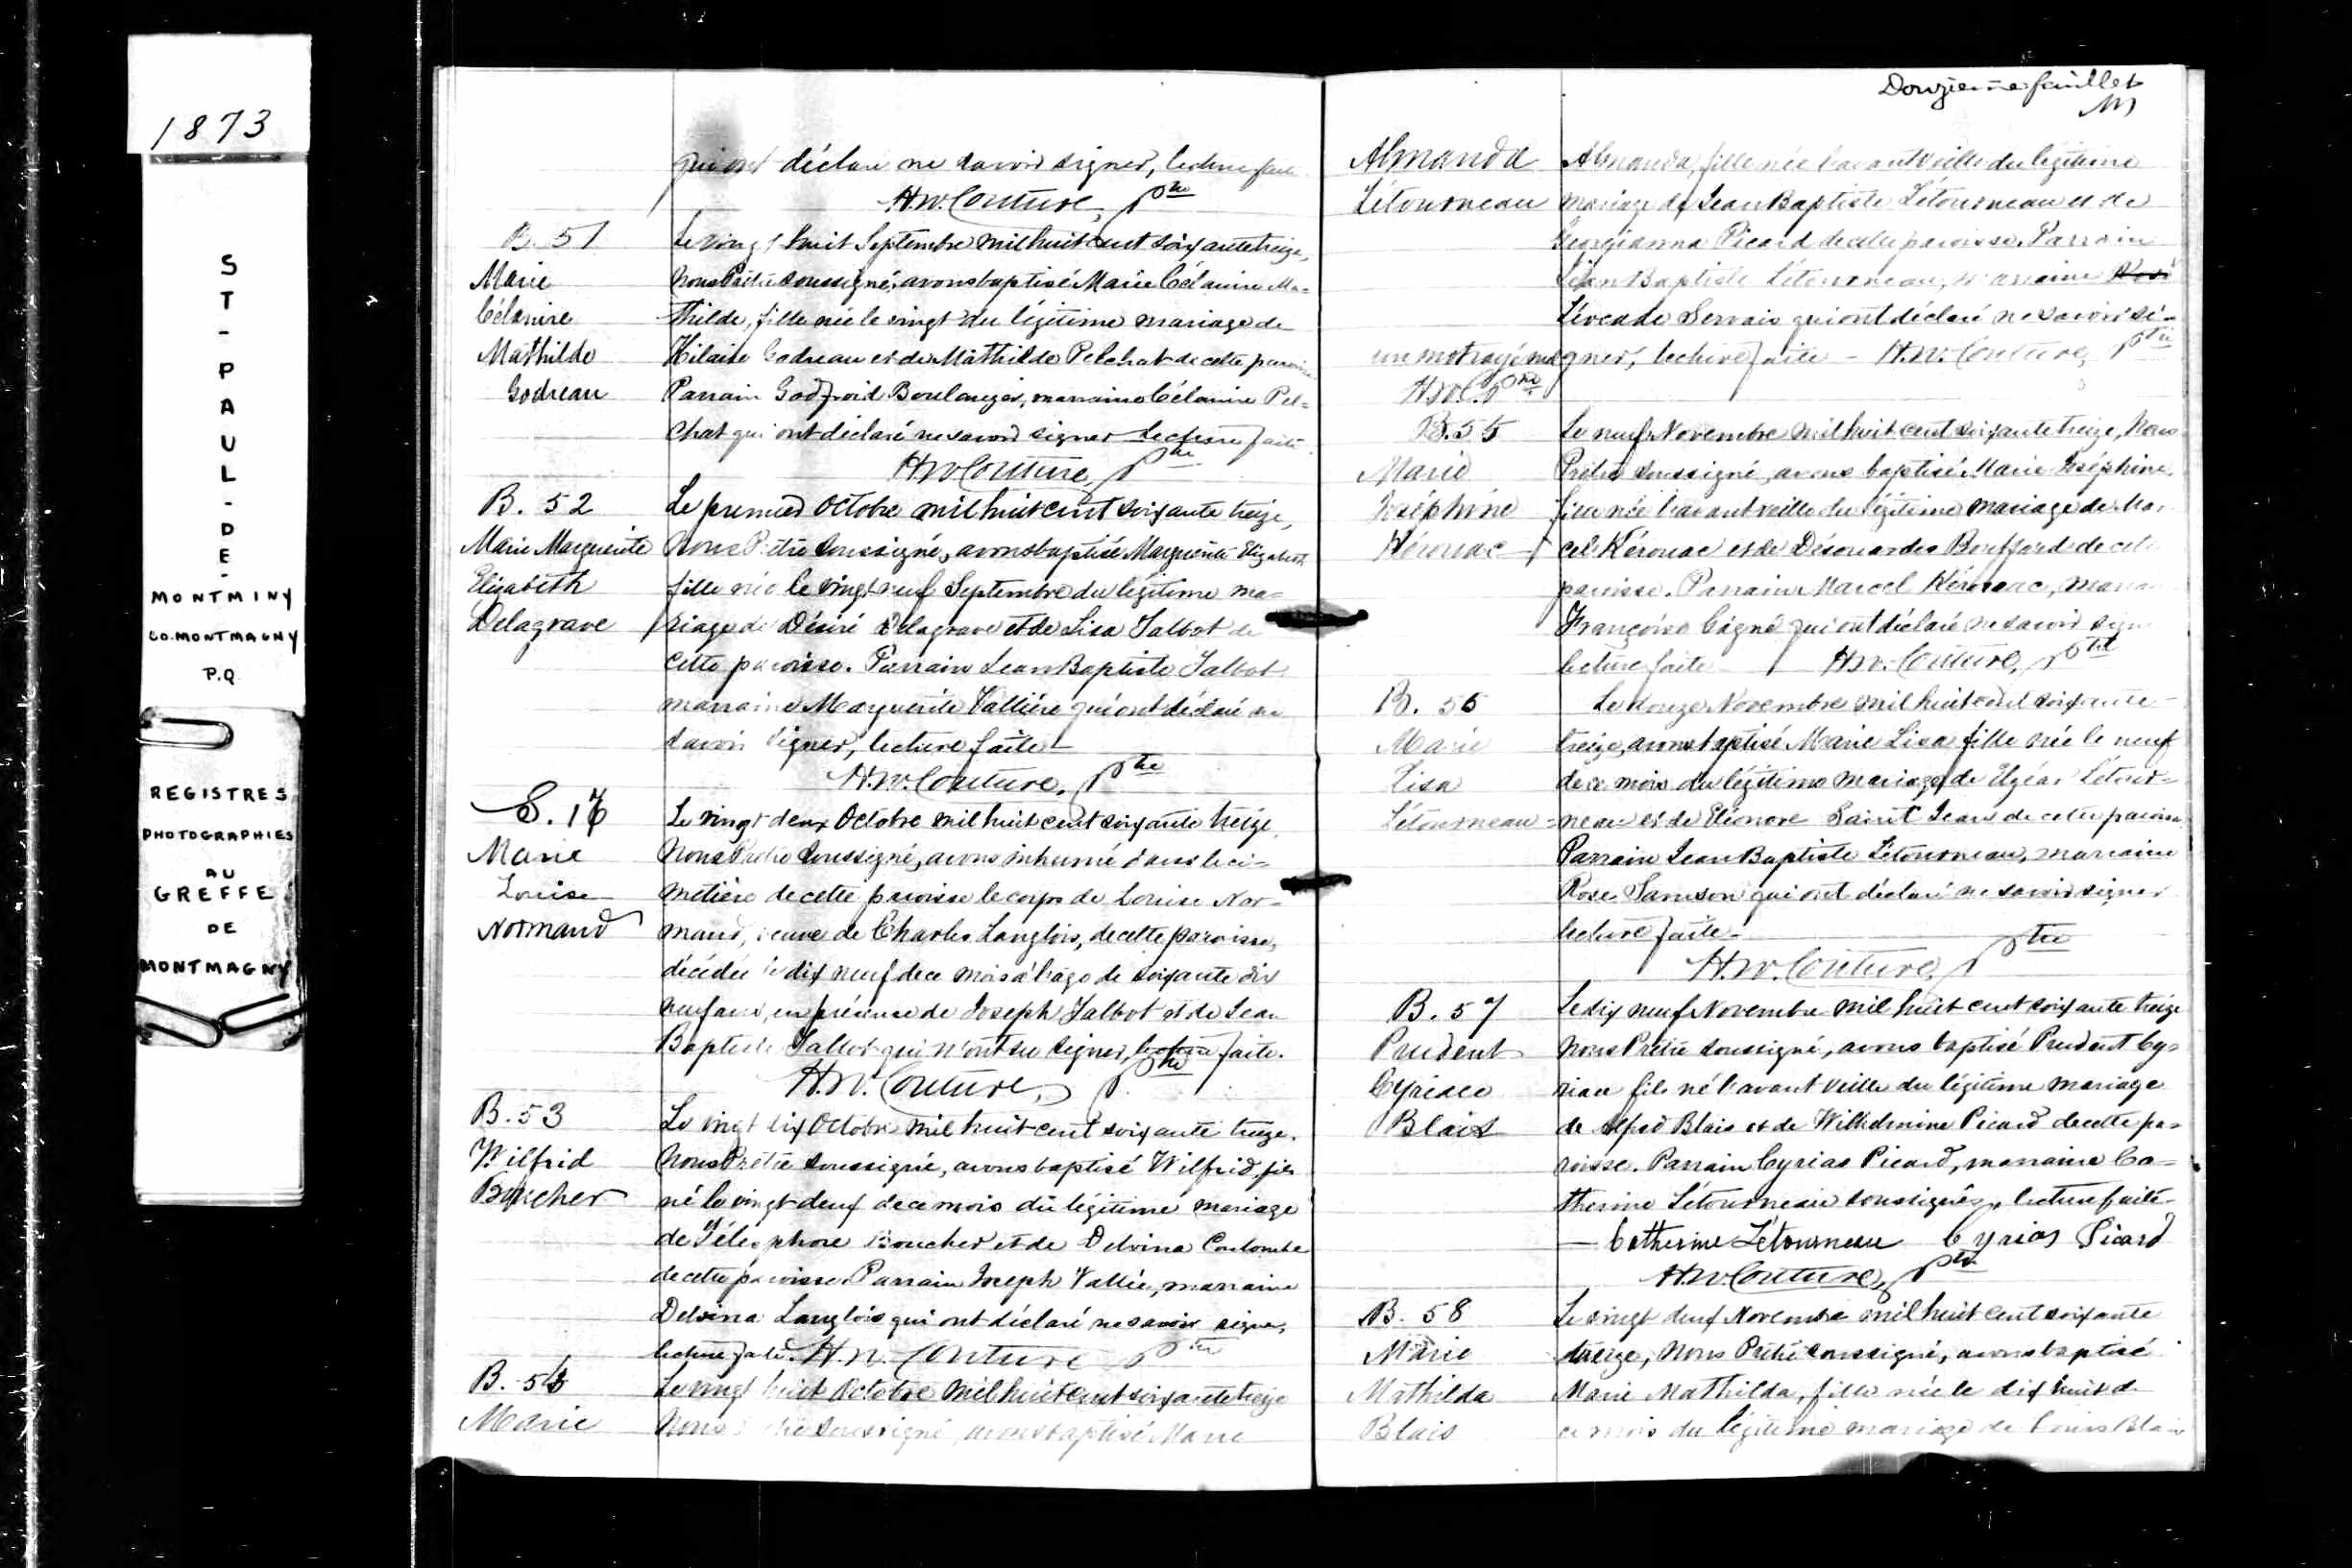 1873
ST-PAUL-DE-
MONTMINY
CO. MONTMAGNY
P.Q.
REGISTRES
PHOTOGRAPHIÉS
AU
GREFFE
DE
MONTMAGNY
qui ont déclaré ne savoir signer, lecture faite
H.W. Couture, Ptre
B. 51
Marie
Célanire
Mathilde
Godreau
Le vingt huit Septembre mil huit cent soixante treize,
Nous Prêtre soussigné, avons baptisé Marie Célanire Ma-
thilde, fille née le vingt du légitime mariage de
Hilaire Godreau et de Mathilde Pelchat de cette paroisse
Parrain Godfroid Boulanger, marraine Célanire Pel-
chat qui ont déclaré ne savoir signer lecture faite.
H.W. Couture, Ptre
B. 52
Marie Marguerite
Elizabeth
Delagrave
Le premier Octobre mil huit cent soixante treize,
Nous Prêtre soussigné, avons baptisé Marguerite Elizabeth
fille née le vingt neuf Septembre du légitime ma-
riage de Désiré Delagrave et de Lisa Talbot de
cette paroisse. Parrain Jean Baptiste Talbot
marraine Marguerite Vallière qui ont déclaré ne
savoir signer, lecture faite
H.W. Couture, Ptre
S. 17
Marie
Louise
Normand
Le vingt deux Octobre mil huit cent soixante treize
Nous Prêtre soussigné, avons inhumé dans le ci-
metière de cette paroisse le corps de Louise Nor-
mand, veuve de Charles Langlois, de cette paroisse,
décédée le dix neuf de ce mois à l'âge de soixante dix
neuf ans, en présence de Joseph Talbot et de Jean
Baptiste Talbot qui n'ont su signer, lecture faite.
H.W. Couture, Ptre
B. 53
Wilfrid
Boucher
Le vingt six Octobre mil huit cent soixante treize.
Nous Prêtre soussigné, avons baptisé Wilfrid, fils
né le vingt deux de ce mois du légitime mariage
de Téléophore Boucher et de Delvina Coulombe
de cette paroisse. Parrain Joseph Vallée, marraine
Delvina Langlois qui ont déclaré ne savoir signer,
lecture faite. H.W. Couture Ptre
B. 54
Marie
Le vingt huit Octobre mil huit cent soixante treize
Nous Prêtre soussigné, avons baptisé Marie
Douzième feuillet
Almanda
Létourneau
Almanda, fille née l'avant veille du légitime
mariage de Jean Baptiste Létourneau et de
Georgianna Picard de cette paroisse. Parrain
Jean Baptiste Létourneau, marraine
Léocade Servais qui ont déclaré ne savoir si-
gner, lecture faite - H.W. Couture, Ptre
un mot rayé nul
H.W.C. Ptre
B. 55
Marie
Joséphine
Kérouac
Le neuf Novembre mil huit cent soixante treize, Nous
Prêtre soussigné, avons baptisé Marie Joséphine,
fille née l'avant veille du légitime mariage de Mar
cel Kérouac et de Désouardes Bouffard de cet
paroisse. Parrain Marcel Kérouac, marra
Françoise Gagné qui ont déclaré ne savoir sign
lecture faite H.W. Couture, Ptre
B. 56
Marie
Lisa
Létourneau
Le douze Novembre mil huit cent soixante
treize, avons baptisé Marie Lisa fille née le neuf
de ce mois du légitime mariage de Elzéar Létour-
neau et de Eléonore Saint Jean de cette paroisse
Parrain Jean Baptiste Létourneau, marraine
Rose Samson qui ont déclaré ne savoir signer
lecture faite.
H.W. Couture, Ptre
B. 57
Prudent
Cyriace
Blais
Le dix neuf Novembre mil huit cent soixante treize
Nous Prêtre soussigné, avons baptisé Prudent Cy-
riac fils né l'avant veille du légitime mariage
de Alfred Blais et de Wilhelmine Picard de cette pa-
roisse. Parrain Cyrias Picard, marraine Ca-
therine Létourneau soussignés, lecture faite
Catherine Létourneau Cyrias Picard
H.W. Couture, Ptre
B. 58
Marie
Mathilda
Blais
Le vingt deux Novembre mil huit cent soixante
treize, Nous Prêtre soussigné, avons baptisé
Marie Mathilda, fille née le dix huit de
ce mois du légitime mariage de Louis Blais